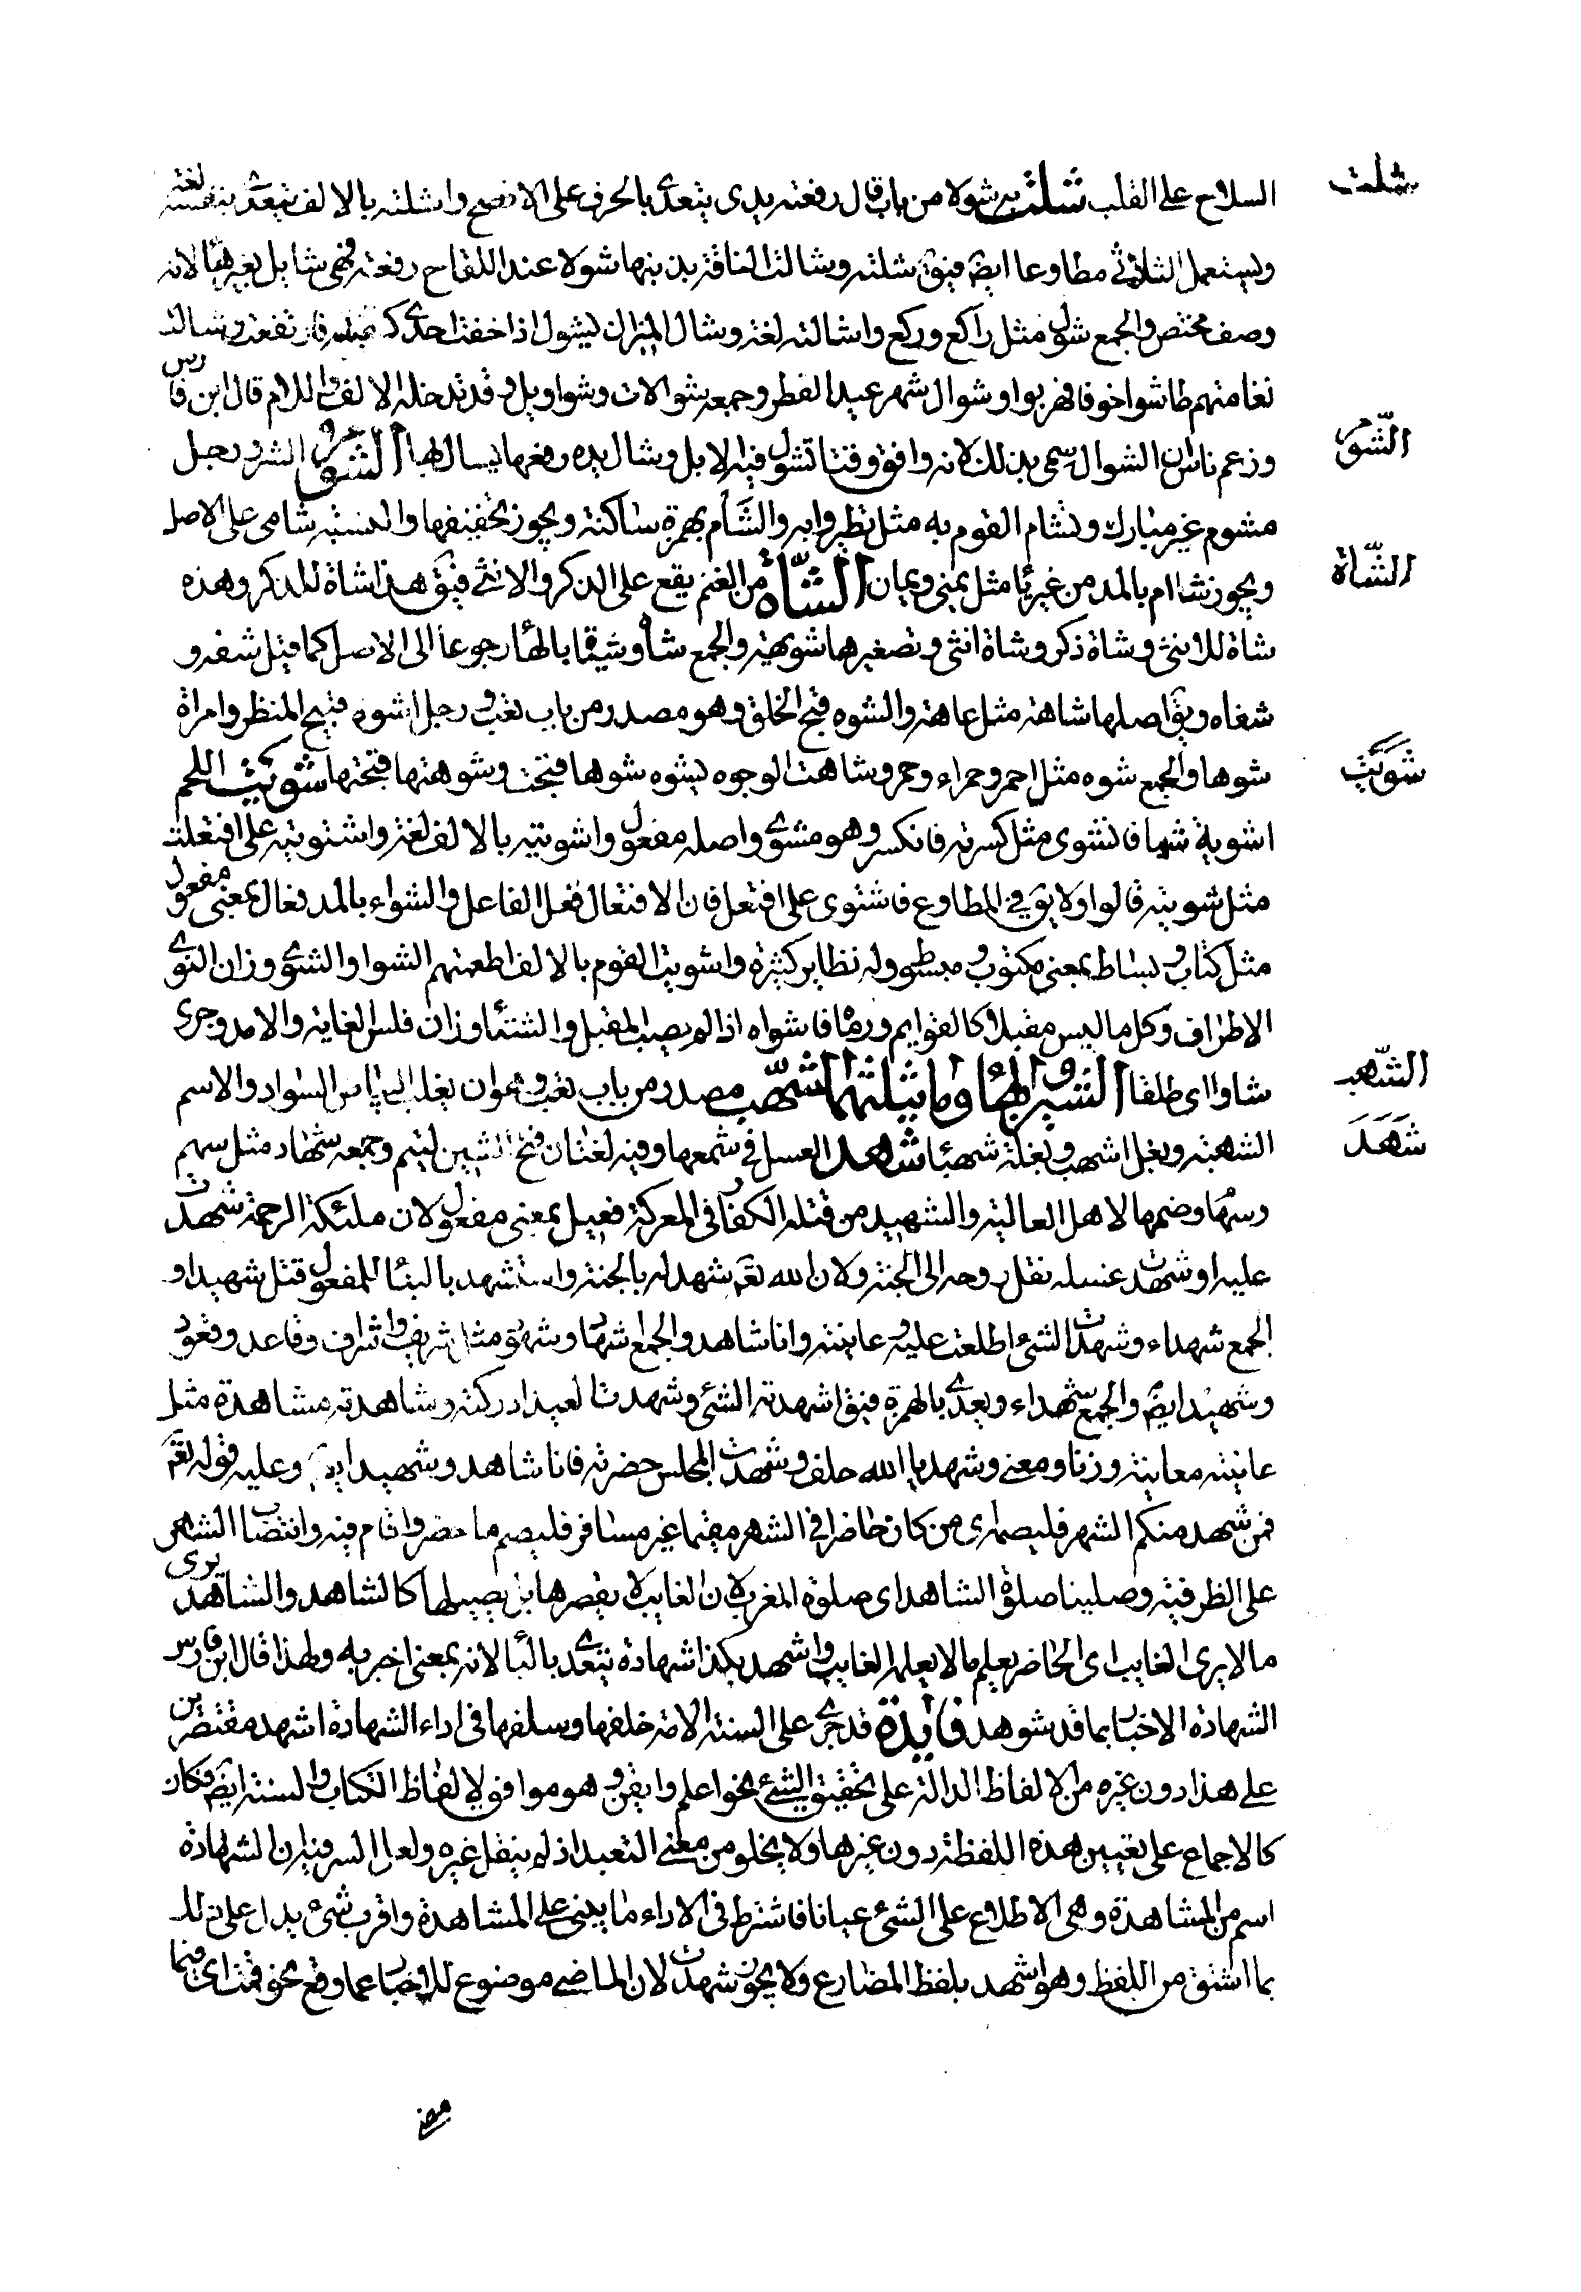 شلت
السلاح على القلب شلت به شولا من باب قال رفعته يدى يتعدى بالحرف على الافصح واشلته بالالف يتعدى بنفسه لغة
ويستعمل الثلاثى مطاوعا ايضً فيقٓ شلته وشالت الناقة بذنبها شولا عند اللقاح رفعته فهى شايل بغير هاٴ لانه
وصف مختص والجمع شول مثل راكع وركع واشالته لغة وشال الميزان يشول اذا خفت احدى كفتيه فارتفعت وشالت
نعامتهم طاشوا خوفا فهربوا وشوال شهر عيد الفطر وجمعه شوالات وشواويل وقد تدخله الالف واللام قال ابن فارس
وزعم ناس ان الشوال سمى بذلك لانه وافق وقتا تشول فيه الابل وشال يده رفعها يسال بها الشوم الشر ورجل
الشّوم
مشوم غير مبارك وتشام القوم به مثل تطيروا به والشَّأم بهمزة ساكنة ويجوز تخفيفها والنسبة شامى على الاصل
ويجوز شاام بالمد من غير ياٴ مثل يمنى ويمان الشّاة من الغنم يقع على الذكر والانثى فيقٓ هذا شاة للذكر وهذه
الشّاة
شاة للانثى وشاة ذكر وشاة انثى وتصغيرها شويهة والجمع شاٴ وشياه بالهاٴ رجوعا الى الاصل كما قيل شفه و
شفاه ويقٓ اصلها شاهة مثل عاهة والشوه قبح الخلق وهو مصدر من باب تعب ورجل اشوه قبيح المنظر وامراة
شوها والجمع شوه مثل احمر وحمراء وحمر وشاهت الوجوه يشوه شوها قبحت وشوهتها قبحتها شويت اللحم
شَوَيْتُ
اشوية شيا فانشوى مثل كسرته فانكسر وهو مشوى واصله مفعول واشويته بالالف لغة واشتويته على افتعلت
مثل شويته قالوا ولا يقٓ فى المطاوع فاشتوى على افتعل فان الافتعال فعل الفاعل والشواء بالمد فعال بمعنى مفعول
مثل كتاب وبساط بمعنى مكتوب ومبسوط وله نظاير كثيرة واشويت القوم بالالف اطعمتهم الشوا والشوى وزان النوى
الاطراف وكل ما ليس مقبلا كالقوايم ورماه فاشواه اذا لم يصب المقتل والشاٴو وزان فلس الغاية والامد وجرى
شاوا اى طلقا الشين والهاٴ وما يثلثهما الشّهب مصدر من باب تعب وهو ان يغلب البياض السواد والاسم
الشّهب
الشهبة وبغل اشهب وبغلة شهباٴ شهد العسل فى شمعها وفيه لغتان فتح الشين لتيم وجمعه شهاد مثل سهم
شَهَدَ
وسهام وضمها لاهل العالية والشهيد من قتله الكفار فى المعركة فعيل بمعنى مفعول لان ملئكة الرحمة شهدت
عليه او شهدت غسله نقل روحه الى الجنة ولان الله تعٓ شهد له بالجنة واستشهد بالبناٴ للمفعول قتل شهيدا و
الجمع شهداء وشهدت الشئ اطلعت عليه وعاينته وانا شاهد والجمع اشهاد وشهود مثل شريف واشراف وقاعد وقعود
وشهيد ايضً والجمع شهداء ويعدى بالهمزة فيقٓ اشهدته الشئ وشهدت العيد ادركته وشاهدته مشاهدة مثل
عاينته معاينة وزنا ومعنى وشهد بالله حلف وشهدت المجلس حضرته فانا شاهد وشهيد ايضً وعليه قوله تعٓ
فمن شهد منكم الشهر فليصمه اى من كان حاضرا فى الشهر مقيما غير مسافر فليصم ما حضر واقام فيه وانتصاب الشهر
على الظرفية وصلينا صلوة الشاهد اى صلوة المغرب لان الغايب لا يقصرها بل يصليها كالشاهد والشاهد يرى
ما لا يرى الغايب اى الحاضر يعلم ما لا يعلمه الغايب واشهد بكذا شهادة يتعدى بالباٴ لانه بمعنى اخبر به ولهذا قال ابن فارس
الشهادة الاخبار بما قد شوهد فايدة قد جرى على السنة الامة خلفها وسلفها فى اداء الشهادة اشهد مقتصرين
على هذا دون غيره من الالفاظ الدالة على تحقيق الشئ نحو اعلم وايقن وهو موافق لالفاظ الكتاب والسنة ايضً فكان
كالاجماع على تعيين هذه اللفظة دون غيرها ولا يخلو من معنى التعبد اذ لم ينقل غيره ولعل السر فيه ان الشهادة
اسم من المشاهدة وهى الاطلاع على الشئ عيانا فاشترط فى الاداء ما ينبئ على المشاهدة واقرب شئ يدل على ذلك
بما اشتق من اللفظ وهو اشهد بلفظ المضارع ولا يجوز شهدت لان الماضى موضوع للاخبار عما وقع نحو قمت اى فيما
مضى